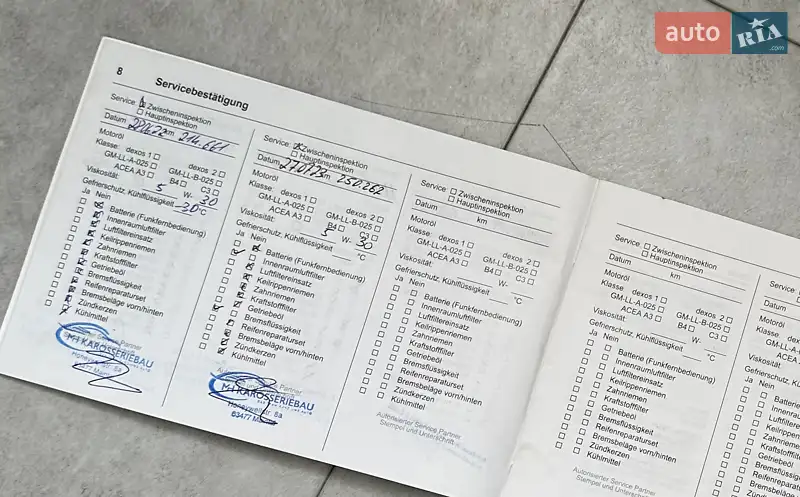 auto RIA .com
8
Servicebestätigung
Service: Zwischeninspektion
Hauptinspektion
Datum km 214.661
Motoröl
Klasse: dexos 1 dexos 2
GM-LL-A-025 GM-LL-B-025
ACEA A3 B4 C3
Viskosität: 5 W- 30
Gefrierschutz, Kühlflüssigkeit -30 °C
Ja Nein
Batterie (Funkfernbedienung)
Innenraumluftfilter
Luftfiltereinsatz
Keilrippenriemen
Zahnriemen
Kraftstofffilter
Getriebeöl
Bremsflüssigkeit
Reifenreparaturset
Bremsbeläge vorn/hinten
Zündkerzen
Kühlmittel
Service Partner
KAROSSERIEBAU
Service: Zwischeninspektion
Hauptinspektion
Datum km 250.262
Motoröl
Klasse: dexos 1 dexos 2
GM-LL-A-025 GM-LL-B-025
ACEA A3 B4 C3
Viskosität: 5 W- 30
Gefrierschutz, Kühlflüssigkeit °C
Ja Nein
Batterie (Funkfernbedienung)
Innenraumluftfilter
Luftfiltereinsatz
Keilrippenriemen
Zahnriemen
Kraftstofffilter
Getriebeöl
Bremsflüssigkeit
Reifenreparaturset
Bremsbeläge vorn/hinten
Zündkerzen
Kühlmittel
Partner
KAROSSERIEBAU
Service: Zwischeninspektion
Hauptinspektion
Datum km
Motoröl
Klasse: dexos 1 dexos 2
GM-LL-A-025 GM-LL-B-025
ACEA A3 B4 C3
Viskosität: W-
Gefrierschutz, Kühlflüssigkeit °C
Ja Nein
Batterie (Funkfernbedienung)
Innenraumluftfilter
Luftfiltereinsatz
Keilrippenriemen
Zahnriemen
Kraftstofffilter
Getriebeöl
Bremsflüssigkeit
Reifenreparaturset
Bremsbeläge vorn/hinten
Zündkerzen
Kühlmittel
Autorisierter Service Partner
Stempel und Unterschrift
Service: Zwischeninspektion
Hauptinspektion
Datum km
Motoröl
Klasse: dexos 1 dexos 2
GM-LL-A-025 GM-LL-B-025
ACEA A3 B4 C3
Viskosität: W-
Gefrierschutz, Kühlflüssigkeit °C
Ja Nein
Batterie (Funkfernbedienung)
Innenraumluftfilter
Luftfiltereinsatz
Keilrippenriemen
Zahnriemen
Kraftstofffilter
Getriebeöl
Bremsflüssigkeit
Reifenreparaturset
Bremsbeläge vorn/hinten
Zündkerzen
Kühlmittel
Autorisierter Service Partner
Stempel und Unterschrift
Service:
Datum
Motoröl
Klasse:
Viskosität:
Gefrierschutz
Ja Nein